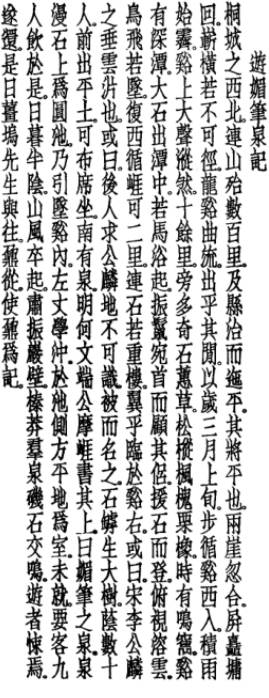 遊媚筆泉記
桐城之西北。連山殆數百里。及縣治而迤平。其將平也。兩崖忽合。屏矗墉
回。嶄橫若不可徑。龍谿曲流。出乎其間。以歲三月上旬。步循谿西入。積雨
始霽。谿上大聲漎然。十餘里旁多奇石蕙草松樅楓槐栗橡。時有鳴巂。谿
有深潭。大石出潭中。若馬浴起。振鬣宛首而顧其侶。援石而登。俯視溶雲。
鳥飛若墜。復西循崖可二里。連石若重樓。翼乎臨於谿右。或曰。宋李公麟
之垂雲沜也。或曰。後人求公麟地不可識。被而名之。石罅生大樹。蔭數十
人。前出平土。可布席坐。南有泉。明何文端公摩崖書其上。曰媚筆之泉。泉
漫石上爲圓池。乃引墜谿內。左丈學沖於池側方平地爲室。未就。要客九
人飲於是。日暮半陰。山風卒起。肅振巖壁榛莽。羣泉磯石交鳴。遊者悚焉。
遂還。是日薑塢先生與往。鼐從。使鼐爲記。